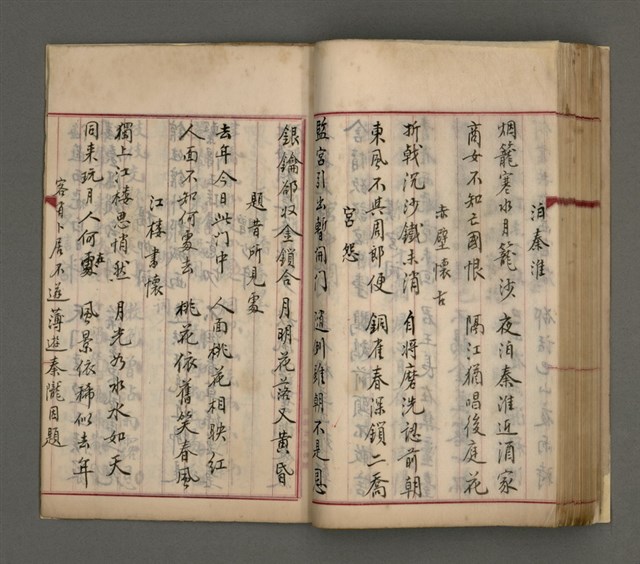 泊秦淮
烟籠寒水月籠沙　夜泊秦淮近酒家
商女不知亡國恨　隔江猶唱後庭花
赤壁懷古
折戟沉沙鐵未消　自將磨洗認前朝
東風不與周郎便　銅雀春深鎖二喬
宮怨
監宮引出暫開門　隨例雖朝不是恩
銀鑰卻收金鎖合　月明花落又黃昏
題昔所見處
去年今日此门中　人面桃花相映红
人面不知何處去　桃花依舊笑春風
江楼書懷
獨上江楼思悄然　月光如水水如天
同来玩月人何處　風景依稀似去年
客有卜居不遂薄遊秦隴因題